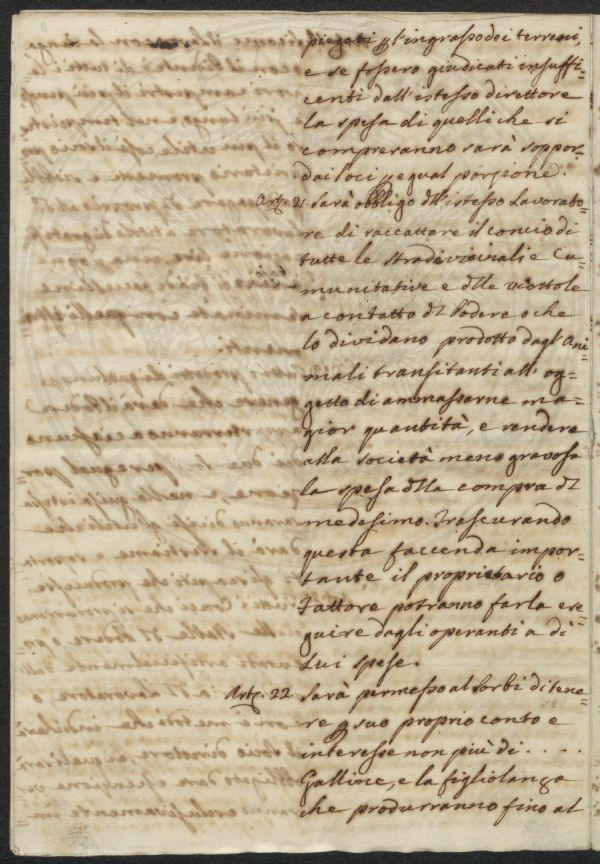 piegati p l'ingrasso dei terreni,
e se fossero giudicati insuffi-
cienti dall'istesso direttore
la spesa di quelli che si
compreranno sarà soppor-
dai soci p egual porzione.
Art. 21 Sarà obbligo dll'istesso Lavorato-
re di raccattare il concio di
tutte le strade vicinali e Co-
munitative e dlle viottole
a contatto dl Podere o che
lo dividano prodotto dagl'Ani-
mali transitanti all'og-
getto di ammassarne ma-
gior quantità, e rendere
alla società meno gravosa
la spesa dlla compra dl
medesimo. Trascurando
questa faccenda impor-
tante il proprietario o
Fattore potranno farla ese-
guire dagli operanti a di
Lui spese.
Art. 22. Sarà permesso al Sorbi di tene-
re p suo proprio conto e
interesse non più di . . . .
Galline, e la figliolanza
che produrranno fino al